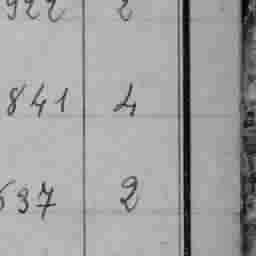 922 2
841 4
637 2